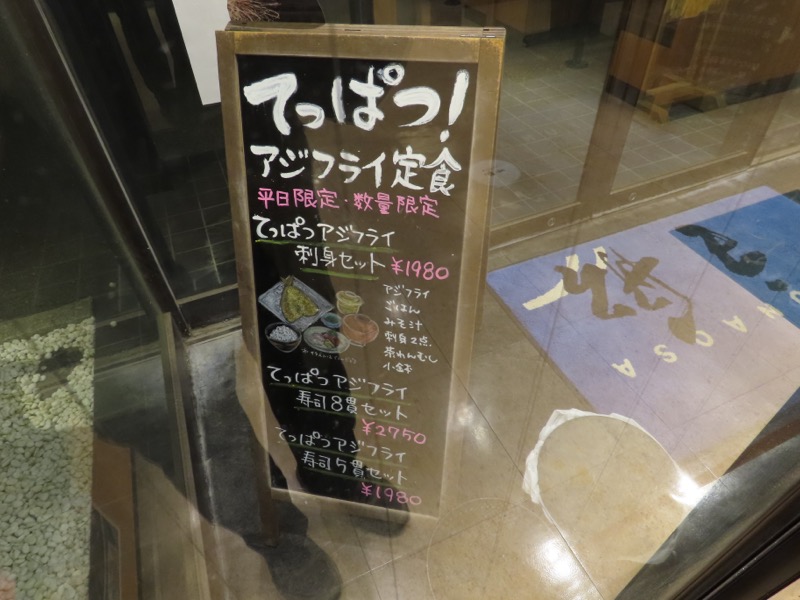 てっぱつ!
アジフライ定食
平日限定・数量限定
てっぱつアジフライ
刺身セット ¥1980
アジフライ
ごはん
みそ汁
刺身2点
茶わんむし
小鉢
てっぱつアジフライ
寿司8貫セット
¥2750
てっぱつアジフライ
寿司5貫セット
¥1980